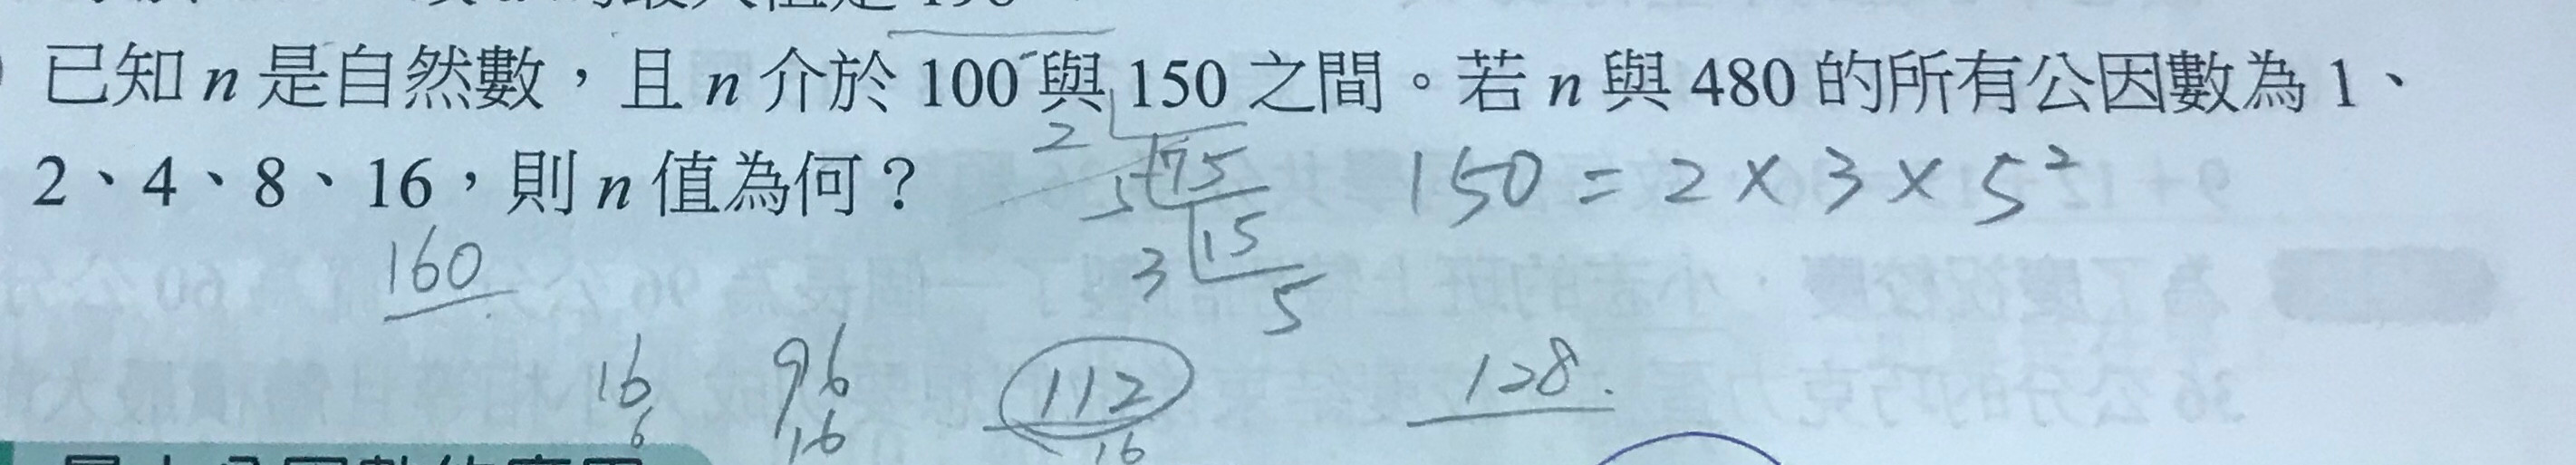 已知 n 是自然數，且 n 介於 100 與 150 之間。若 n 與 480 的所有公因數為 1、
2、4、8、16，則 n 值為何？
150 = 2 × 3 × 5²
2 75
5 15
3 5
160
16 96 112 128.
6 16 16